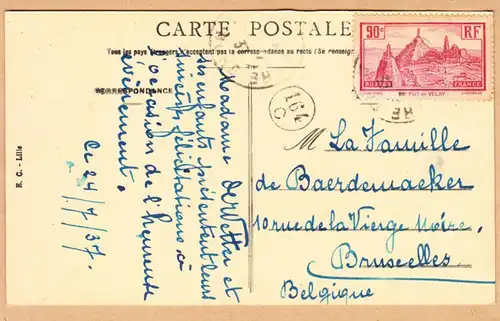 CARTE POSTALE
Tous les pays étrangers n'acceptent pas la correspondance au recto (Se renseigner
CORRESPONDANCE
E. C. - Lille
Madame et
ses enfants présentent leurs
sincères félicitations à
l'occasion de l'heureux
évènement.
Ce 24/7/37.
164
C
90c
RF
POSTES
FRANCE
LE PUY-EN-VELAY
M La Famille
de Baerdemaeker
10 rue de la Vierge Noire,
Bruxelles
Belgique